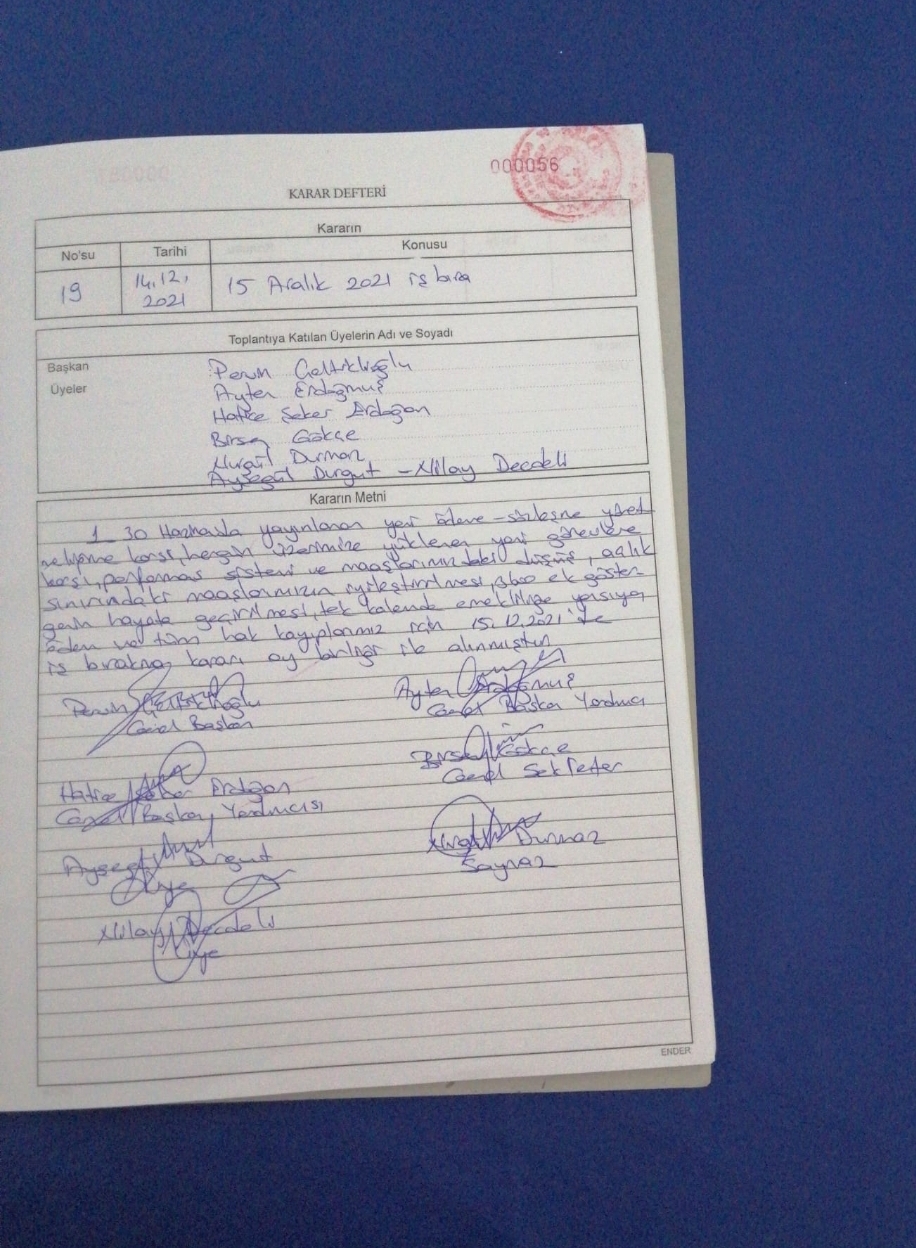 000056
KARAR DEFTERİ
Kararın
No'su Tarihi Konusu
19 14.12.2021 15 Aralık 2021 iş bıra
Toplantıya Katılan Üyelerin Adı ve Soyadı
Başkan
Üyeler
Ayten Erdoğmuş
Hatice Şeker Erdoğan
Birsen Gökçe
Nurgül Durmaz
Ayşegül Durgut - Nilay Decdeli
Kararın Metni
1_ 30 Haziranda yayınlanan yeni ödeme-sözleşme
karşı, hergün üzerimize yüklenen yeni görevlere
karşı, performas sistemi ve maaşlarımızdaki düşüş, açlık
sınırındaki maaşlarımızın iyileştirilmesi, 3600 ek göster-
genin hayata geçirilmesi, tek kalemde emekliliğe yansıyan
ödem ve tüm hak kayıplarımız için 15.12.2021'de
iş bırakma kararı oy birliği ile alınmıştır
Genel Başkan
Ayten Erdoğmuş
Genel Başkan Yardımcı
Hatice Şeker Erdoğan
Genel Başkan Yardımcısı
Birsen Gökçe
Genel Sekreter
Ayşegül Durgut
Üye
Durmaz
Sayman
Nilay Decdeli
Üye
ENDER